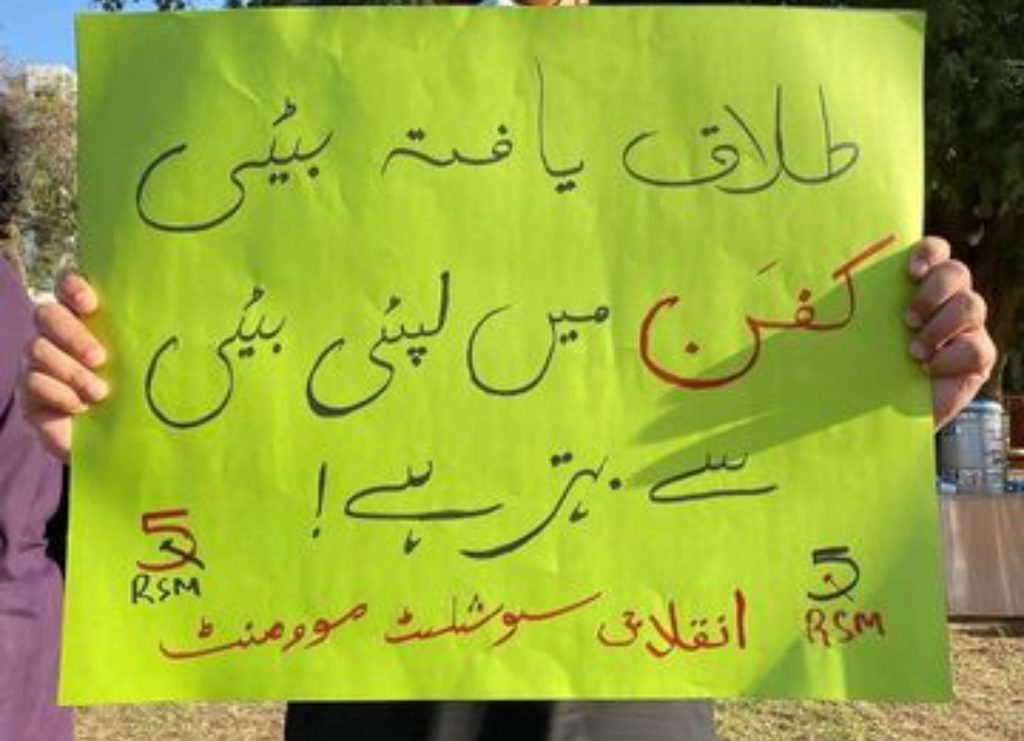 طلاق یافتہ بیٹی
کفَن میں لپٹی بیٹی
سے بہتر ہے!
RSM
RSM
انقلابی سوشلسٹ موومنٹ